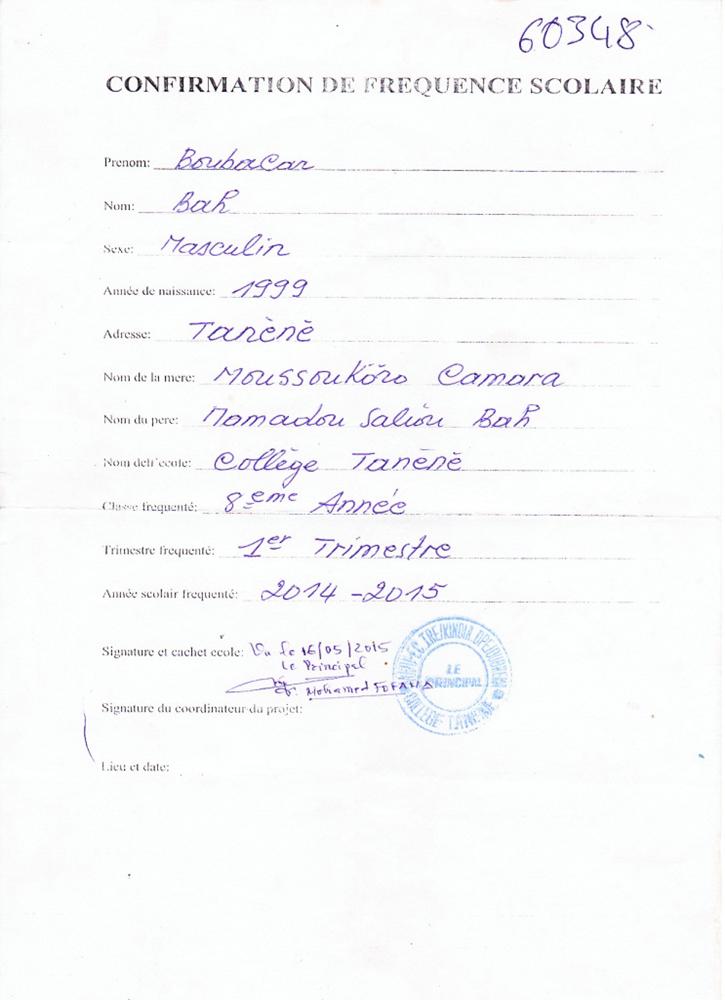 60348
CONFIRMATION DE FREQUENCE SCOLAIRE
Prenom: Boubacar
Nom: Bah
Sexe: Masculin
Année de naissance: 1999
Adresse: Tanènè
Nom de la mere: Moussoukôro Camara
Nom du pere: Mamadou Saliou Bah
Nom de l'ecole: Collège Tanènè
Classe frequenté: 8eme Année
Trimestre frequenté: 1er Trimestre
Année scolair frequenté: 2014-2015
Signature et cachet ecole: Vu le 16/05/2015
Le Principal
Mohamed FOFANA
LE
PRINCIPAL
COLLEGE TANENE
Signature du coordinateur du projet:
Lieu et date: